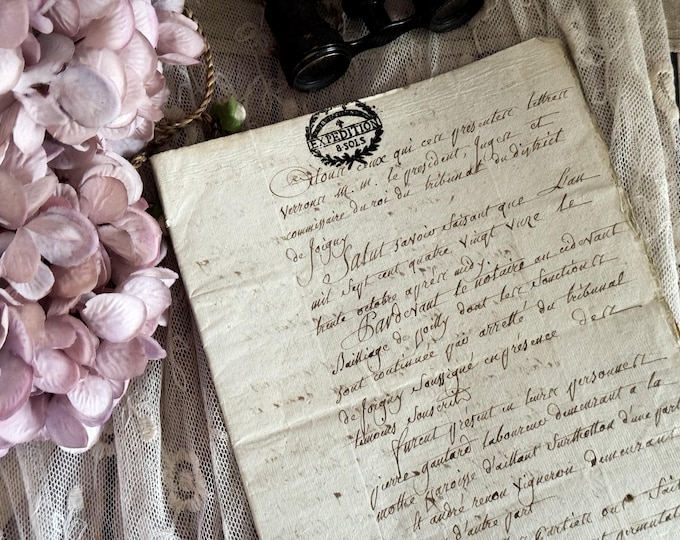 EXPEDITION
8·SOLS
Atous ceux qui ces presentes lettres
Verrons M. M. le president, Juges et
commissaire du roi du tribunal du District
de Joigny
Salut Savoir faisant que L'an
mil Sept cent quatre vingt unze le
trente octobre après midy.
Pardevant le notaire au cidevant
Bailliage de dont les fonctions
sont continuée par arretté du tribunal
de Joigny Soussigné en presence des
temoins Souscrits
Furent present en leurs personnes
pierre gautard laboureur demeurant a la
mothe paroisse d'aillant Surthollon d'une part
et andré renou vigneron demeurant
d'autre part
Parties ont fait
permutat